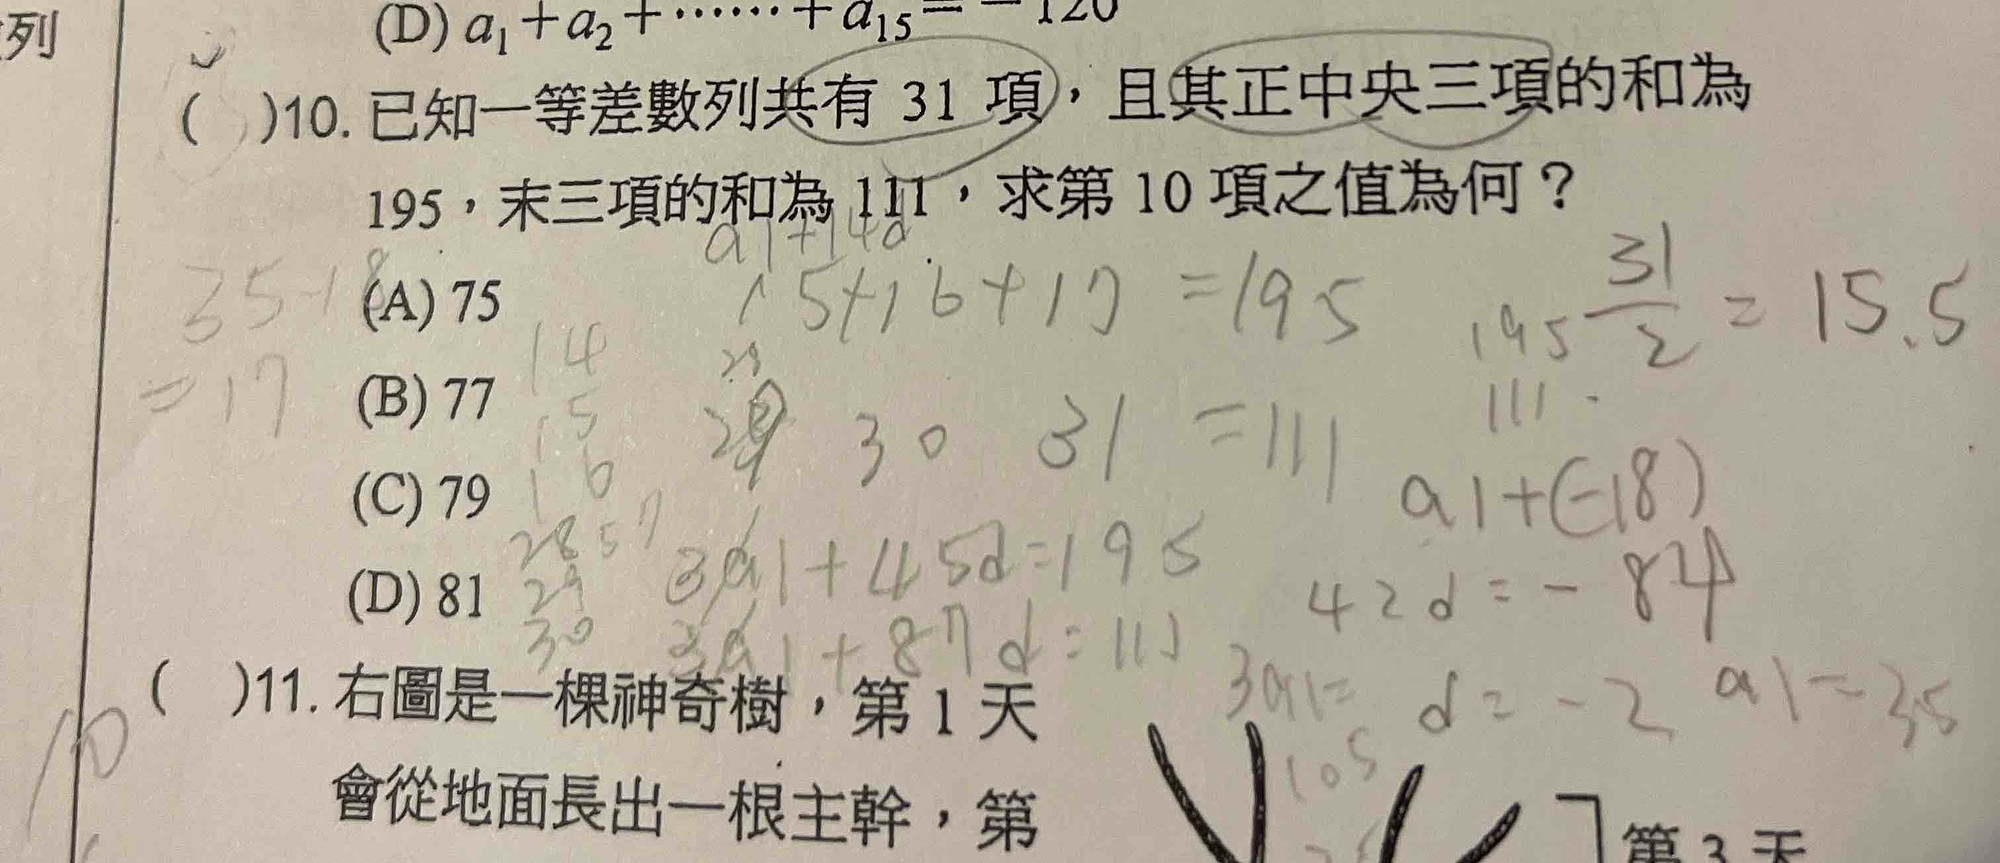 列
(D) a₁+a₂+……+a₁₅=－120
( )10. 已知一等差數列共有 31 項，且其正中央三項的和為
195，末三項的和為 111，求第 10 項之值為何？
a1+14d
35-18
(A) 75
15+16+17 =195
195
31/2 = 15.5
=17
(B) 77
14
15
16
29
30 31 =111
111
(C) 79
a1+(-18)
28 57
29
30
3a1+45d=195
(D) 81
3a1+87d=111
42d=-84
3a1=
105
d=-2
a1=35
( )11. 右圖是一棵神奇樹，第 1 天
會從地面長出一根主幹，第
第 3 天